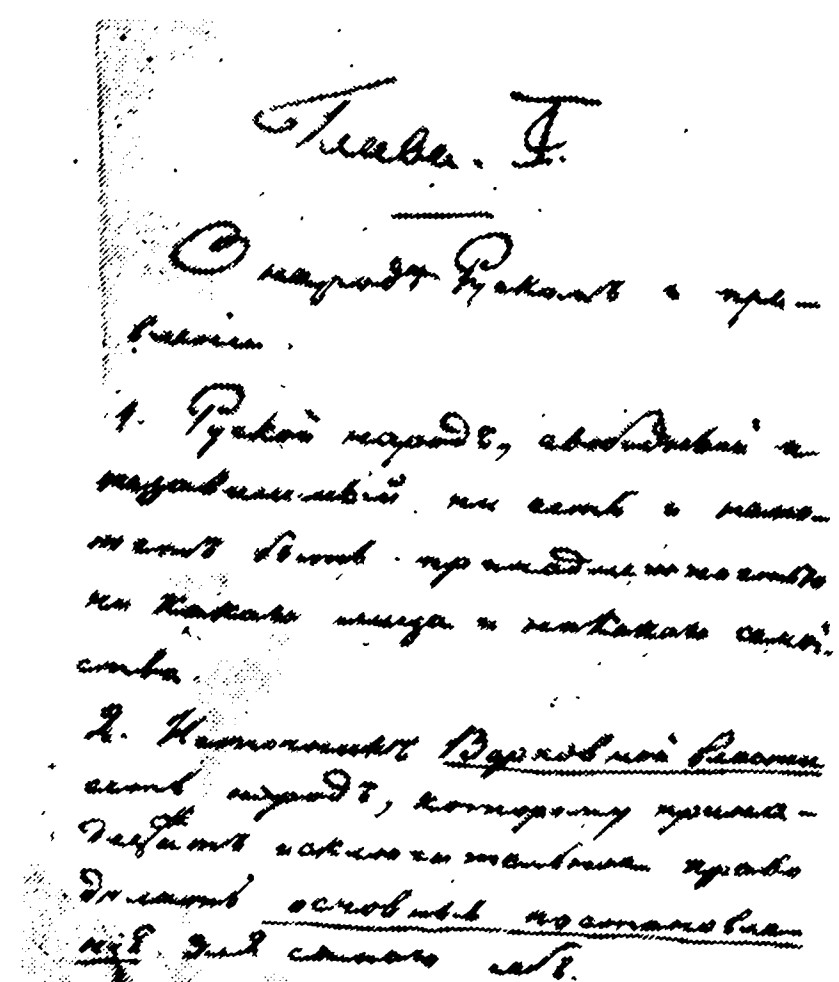 Глава. I.
О народѣ Рускомъ и пра-
вленіи.
1. Руской народъ, свободный и не-
независимый не есть и не мо-
жетъ быть принадлежностью
ни какого лица и никакого семей-
ства.
2. Источникъ Верховной власти
есть народъ, которому прина-
длежитъ исключительное право
дѣлать основныя постановле-
нія для самого себя.